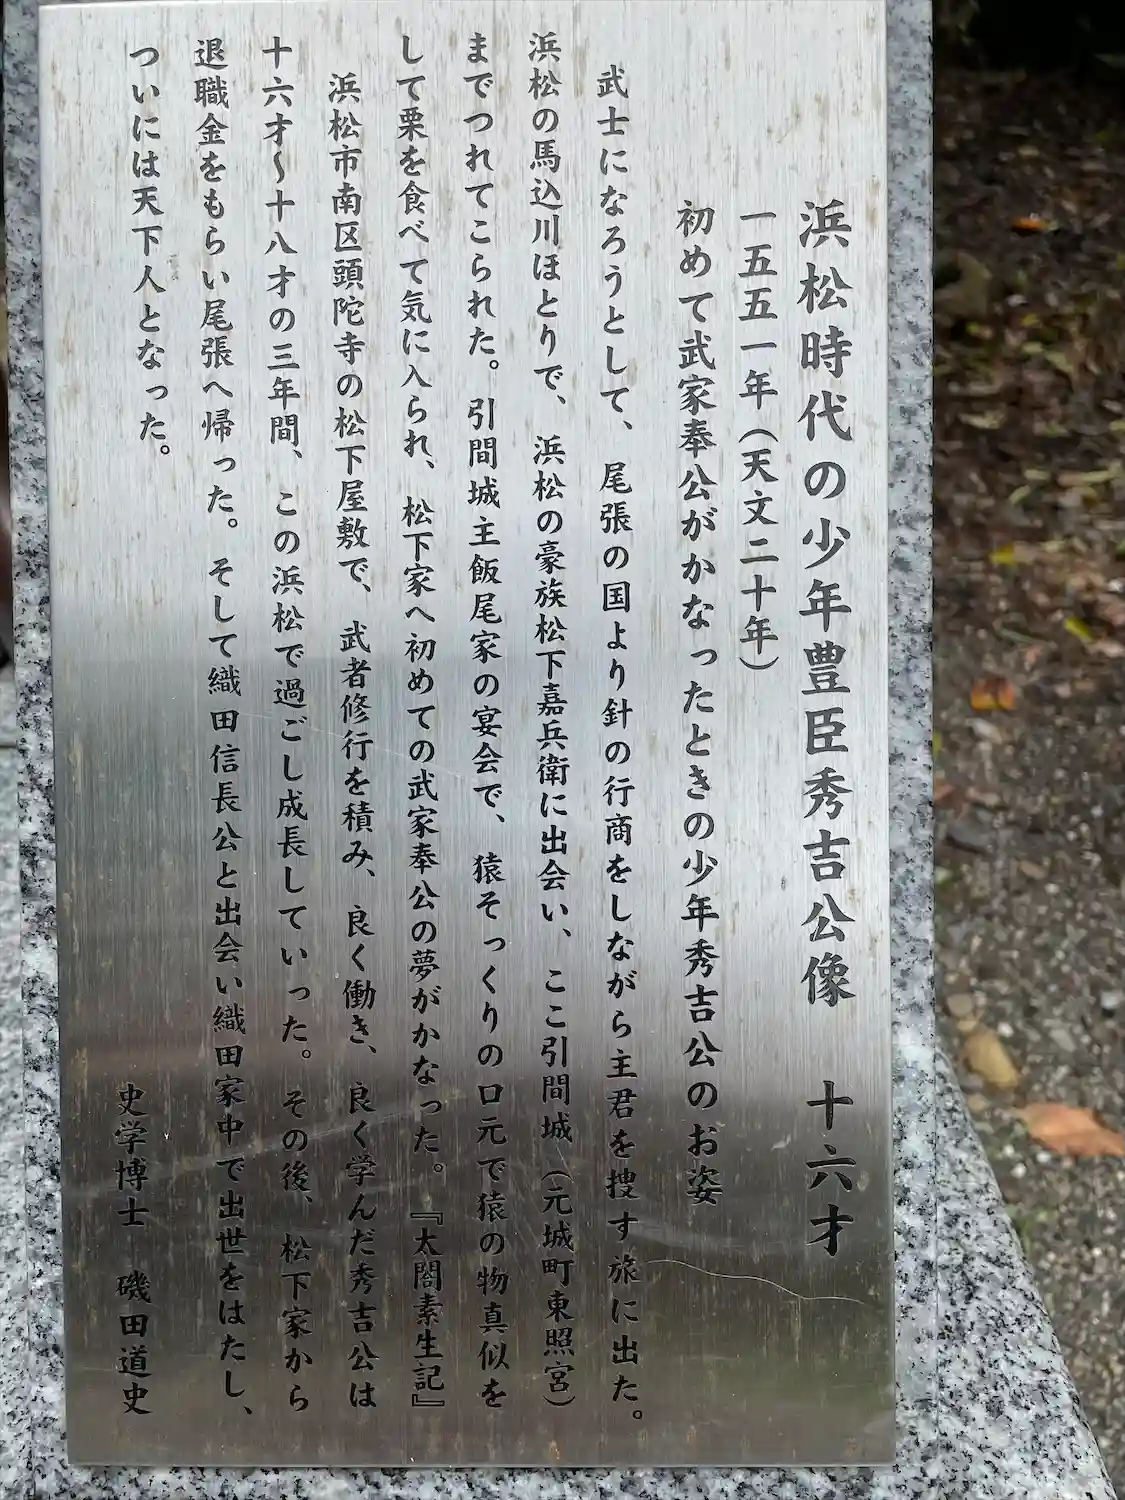 浜松時代の少年豊臣秀吉公像　十六才
一五五一年（天文二十年）
初めて武家奉公がかなったときの少年秀吉公のお姿
武士になろうとして、尾張の国より針の行商をしながら主君を捜す旅に出た。
浜松の馬込川ほとりで、浜松の豪族松下嘉兵衛に出会い、ここ引間城（元城町東照宮）
までつれてこられた。引間城主飯尾家の宴会で、猿そっくりの口元で猿の物真似を
して栗を食べて気に入られ、松下家へ初めての武家奉公の夢がかなった。『太閤素生記』
浜松市南区頭陀寺の松下屋敷で、武者修行を積み、良く働き、良く学んだ秀吉公は
十六才〜十八才の三年間、この浜松で過ごし成長していった。その後、松下家から
退職金をもらい尾張へ帰った。そして織田信長公と出会い織田家中で出世をはたし、
ついには天下人となった。
史学博士　磯田道史